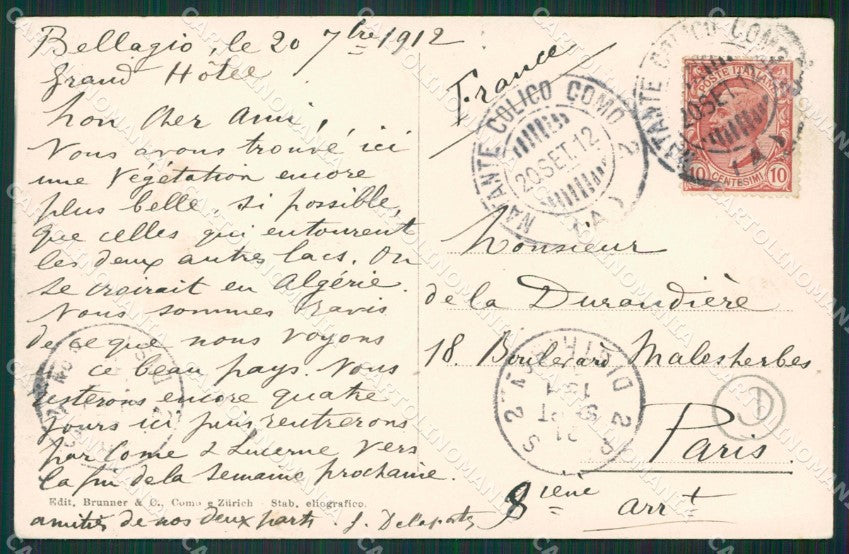 Bellagio, le 20 7bre 1912
Grand Hôtel
Mon Cher Ami,
Nous avons trouvé ici
une Végétation encore
plus belle, si possible,
que celles qui entourent
les deux autres lacs. On
se croirait en Algérie.
Nous sommes ravis
de ce que nous voyons
ce beau pays. Nous
resterons encore quatre
jours ici puis rentrerons
par Come & Lucerne vers
la fin de la semaine prochaine.
Edit, Brunner & C., Como e Zürich - Stab. eliografico.
amitiés de nos deux parts
France
NATANTE COLICO COMO
20 SET. 12
NATANTE COLICO COMO
20 SET
POSTE ITALIANE
10 CENTESIMI 10
Monsieur
de la Durandière
18. Boulevard Malesherbes
Paris
8ième
arrt
CARTOLINOMANIA